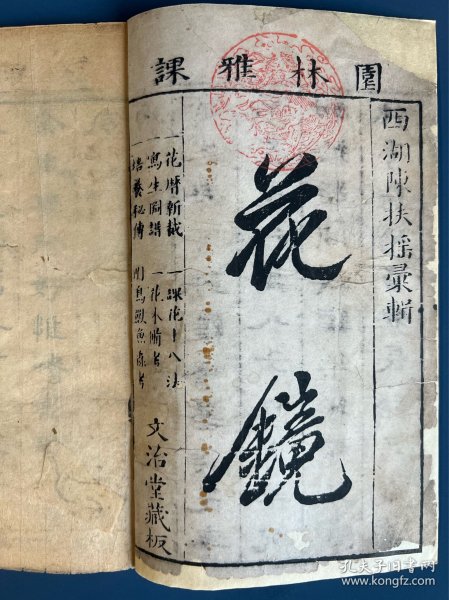 園林雅課
西湖陳扶摇彙輯
花鏡
一花曆新裁 一課花十八法
寫生圖譜 一花木備考
培養秘傳 附鳥獸魚虫考
文治堂藏板
孔夫子旧书网
www.kongfz.com